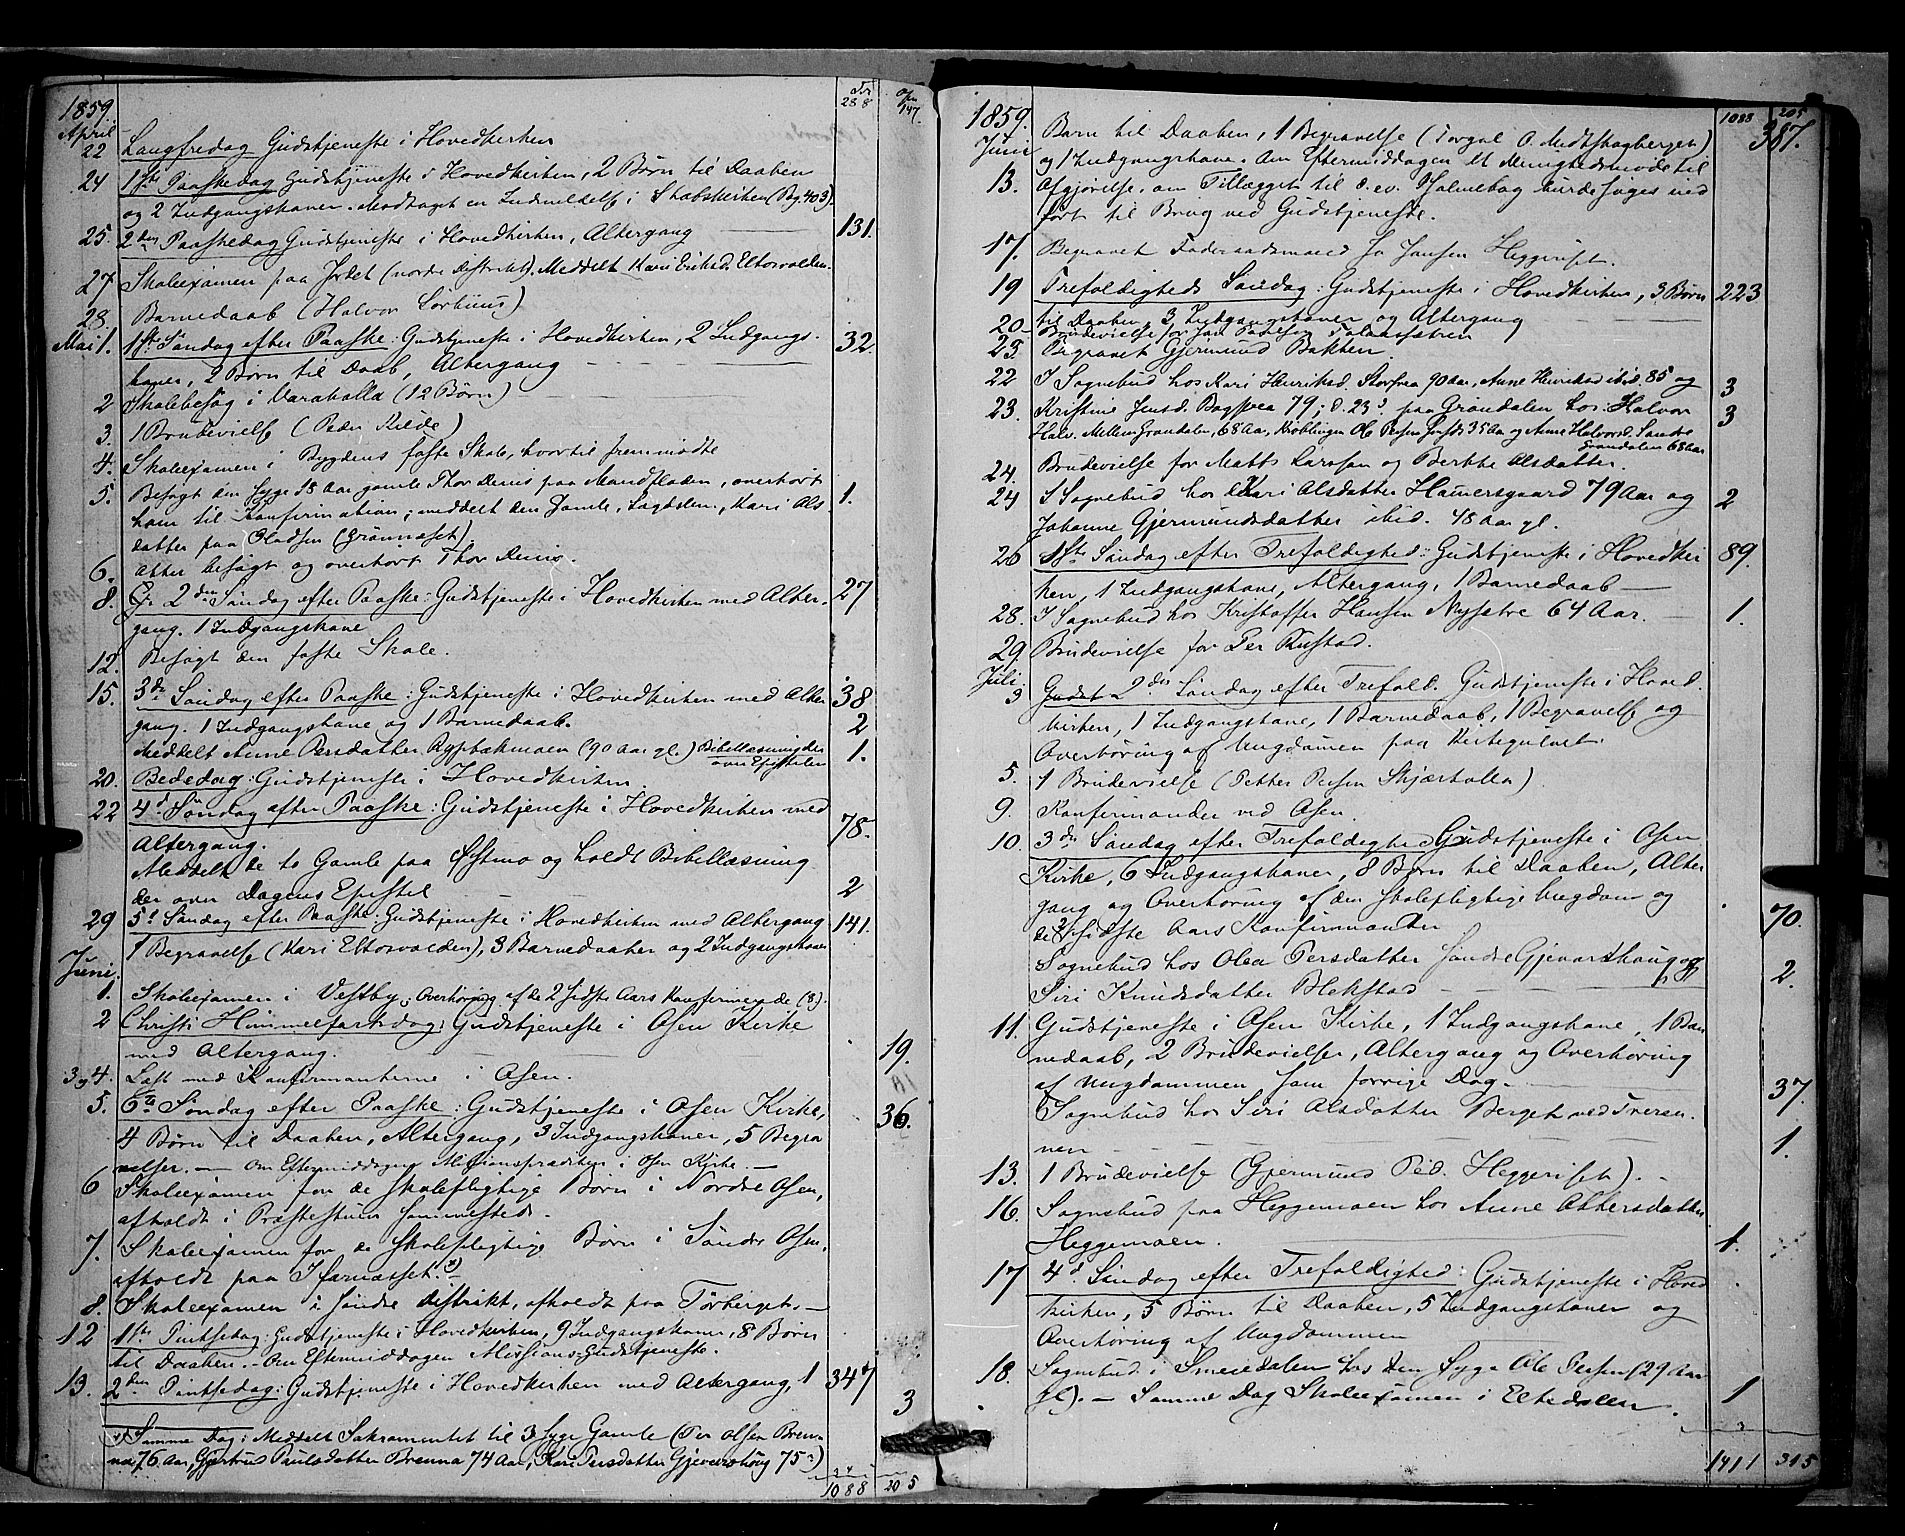 1859.
April
288
147.
22 Langfredag Gudstjeneste i Hovedkirken
24 1ste Paaskedag Gudstjeneste i Hovedkirken, 2 Børn til Daaben
og 2 Indgangskoner. Modtaget en Indmeldelse i Statskirken (Pg. 403).
25. 2den Paaskedag Gudstjeneste i Hovedkirken, Altergang 131.
27 Skoleexamen paa Jordet (nordre Distrikt). Meddelt Kari Eriksd. Eltosvolden.
28. Barnedaab (Halvor Sørhuus)
Mai 1. 1ste Søndag efter Paaske: Gudstjeneste i Hovedkirken, 2 Indgangs- 32.
koner, 2 Børn til Daab, Altergang
2 Skolebesøg i Varaholla (12 Børn)
3. 1 Brudevielse (Peder Kilde)
4. Skoleexamen i Bygdens faste Skole, hvortil fremmødte
5. Besøgt den syge 18 Aar gamle Thor Denis paa Mandfloden, overhørt 1.
ham til Konfirmation; meddelt den Gamle, Kari Ols-
datter paa
6. Atter besøgt og overhørt Thor Denis.
8. 2den Søndag efter Paaske: Gudstjeneste i Hovedkirken med Alter- 27
gang. 1 Indgangskone
12. Besøgt den faste Skole.
15. 3die Søndag efter Paaske: Gudstjeneste i Hovedkirken med Alter 38
gang. 1 Indgangskone og 1 Barnedaab. 2
Meddelt Anne Persdatter Rypbakmoen (90 Aar gl.) Bibellæsning der 1.
over Epistelen
20. Bededag: Gudstjeneste i Hovedkirken
22 4de Søndag efter Paaske: Gudstjeneste i Hovedkirken med
Altergang. 78.
Meddelt de to Gamle paa Østmo og holdt Bibellæsning
der over Dagens Epistel 2
29 5te Søndag efter Paaske: Gudstjeneste i Hovedkirken med Altergang 141.
1 Begravelse (Kari Eltosvolden), 3 Barnedaaber og 2 Indgangskoner
Juni
1. Skoleexamen i Vestby; Overhøring af de 2 sidste Aars Konfirmerede (8).
2 Christi Himmelfartsdag: Gudstjeneste i Osen Kirke
med Altergang. 19.
3 og 4. Læst med Konfirmanterne i Osen.
5. 6te Søndag efter Paaske: Gudstjeneste i Osen Kirke, 36.
4 Børn til Daaben, Altergang, 3 Indgangskoner, 5 Begra
velser. — Om Eftermiddagen Missionspræken i Osen Kirke. —
6 Skoleexamen for de skolepligtige Børn i Nordre Osen,
afholdt i Præstestuen sammesteds.
7. Skoleexamen for de skolepligtige Børn i Søndre Osen,
afholdt paa
8. Skoleexamen i søndre Distrikt, afholdt paa Torberget.
12 1ste Pintsedag: Gudstjeneste i Hovedkirken, 9 Indgangskoner, 8 Børn
til Daaben. — Om Eftermiddagen Missions-Gudstjeneste.
13. 2den Pintsedag: Gudstjeneste i Hovedkirken med Altergang, 1 347
3
Samme Dag: Meddelt Sakramentet til 3 syge Gamle (Per Olsen Bren-
na 76 Aar, Gjertrud Paulsdatter Brenna 74 Aar, Kari Persdatter Gjevershoug 75)
1088 205
1859. 1088 205
387.
Juni Barn til Daaben, 1 Begravelse (Torgal O. Midtskogberget)
og 1 Indgangskone. Om Eftermiddagen et Menighedsmøde til
13. Afgjørelse, om Tillægget til d. ev. Psalmebog burde søges ind
ført til Brug ved Gudstjeneste.
17. Begravet Foderaadsmand Jo Jonsen Heggeriset.
19 Trefoldigheds Søndag: Gudstjeneste i Hovedkirken, 3 Børn 223
til Daaben, 3 Indgangskoner og Altergang
20 Brudevielse for Jon
23. Begravet Gjermund Bakken
22 I Sognebud hos Kari Henriksd. Storsvea 90 Aar, Anne Henriksd ibid. 85 og 3
23. Kristine Jensd. Bagsvea 79; d. 23d paa Grøndalen hos Halvor 3
Halv. Mellem Grøndalen, 68 Aar, Krøblingen Ole Persen 35 Aar og Anne Halvorsd. Søndre
Grøndalen 68 Aar
24. Brudevielse for Matts Larssen og Berthe Olsdatter.
24 I Sognebud hos Kari Olsdatter Hamersgaard 79 Aar og 2
Johanne Gjermundsdatter ibid. 48 Aar gl.
26 1ste Søndag efter Trefoldighed: Gudstjeneste i Hovedkir 89.
ken, 1 Indgangskone, Altergang, 1 Barnedaab —
28. I Sognebud hos Kristoffer Hansen Nysstre 64 Aar. 1.
29. Brudevielse for Per Kustad.
Juli
3 2den Søndag efter Trefold. Gudstjeneste i Hoved-
kirken, 1 Indgangskone, 1 Barnedaab, 1 Begravelse og
Overhøring af Ungdommen paa Kirkegulvet.
5. 1 Brudevielse (Petter Persen Skjærholla)
9. Konfirmander ved Osen.
10. 3die Søndag efter Trefoldighed Gudstjeneste i Osen
Kirke, 6 Indgangskoner, 8 Børn til Daaben, Alter
gang og Overhøring af den skolepligtige Ungdom og
de 2 sidste Aars Konfirmander 70.
Sognebud hos Olea Persdatter Søndre Gjevarshaug og 2.
Siri Knudsdatter Blekstad
11. Gudstjeneste i Osen Kirke, 1 Indgangskone, 1 Bar
nedaab, 2 Brudevielser, Altergang og Overhøring
af Ungdommen som forrige Dag. 37.
Sognebud hos Siri Olsdatter Berget ved Tveræn-
nen 1.
13. 1 Brudevielse (Gjermund Ped. Heggeriset).
16. Sognebud paa Heggemoen hos Anne Ottersdatter
Heggemoen. 1.
17 4de Søndag efter Trefoldighed: Gudstjeneste i Hoved
kirken, 5 Børn til Daaben, 5 Indgangskoner og
Overhøring af Ungdommen
18. Sognebud i Smeedalen hos den syge Ole Persen (29 Aar
gl). — Samme Dag Skoleexamen i Eltdalen. 1
1411 315